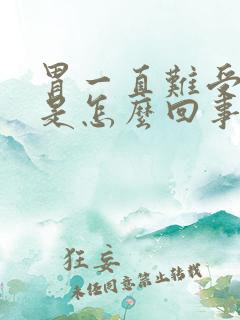 胃一直難受
是怎麽回事
狂妄
未经同意禁止转载